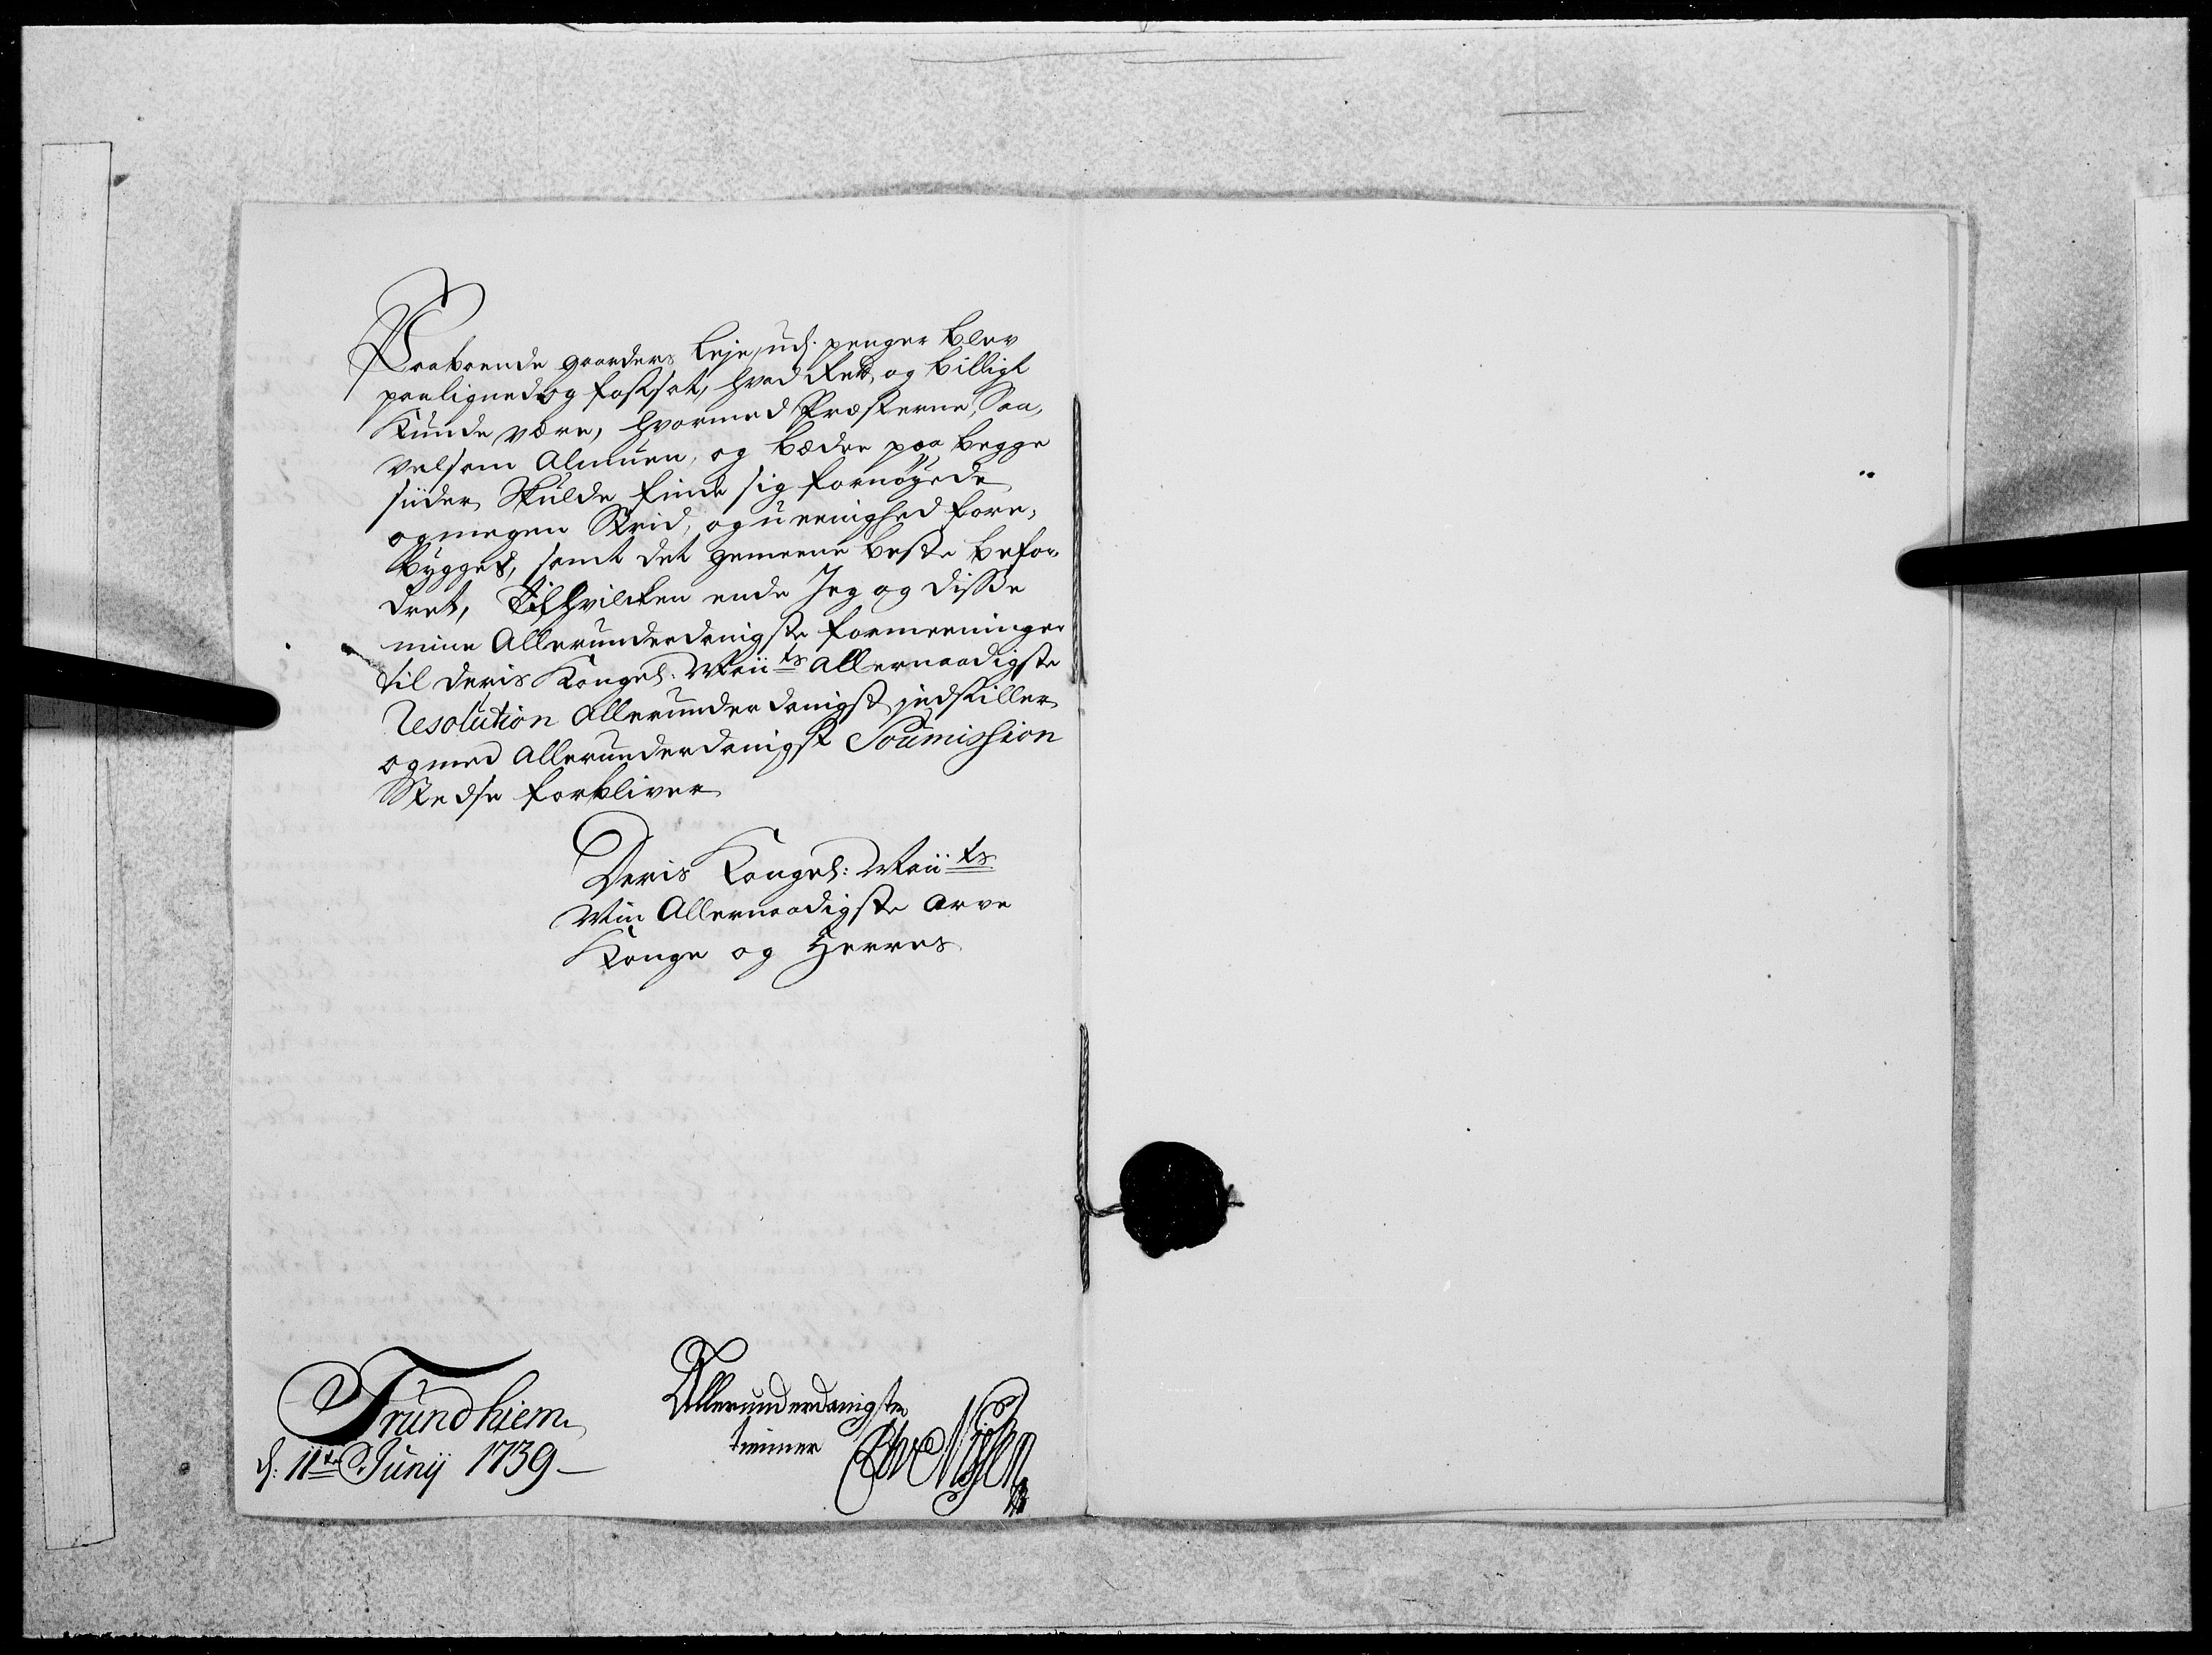 Paaboende gaarders leje, udj. penger blev
paaligned og fastsat, hvad Ret, og billigt
kunde være, hvormed Præsterne, Saa,
velsom Almuen, og bæder paa begge
siider Skulde finde sig fornøyede
og megen Strid, og ueenighed fore,
bygges, samt det gemeene beste befor,
dret, Til hvilcken ende Jeg og disse
mine Allerunderdanigste formeeninger
til deris Kongel: Maiits Allernaadigste
Resolution allerunderdanigst jndstiller
og med allerunderdanigst Soumission
Stedse forbliver
Deris Kongel: Maiits
Min Allernaadigste arve
Konge og Herres
Trundhiem
d: 11te Junij 1739
Allerunderdanigste
tienner